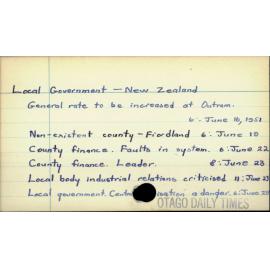 Local Government — New Zealand
General rate to be increased at Outram.
6: June 16, 1951
Non-existent county - Fiordland 6: June 18
County finance. Faults in system. 6: June 22
County finance. Leader. 8: June 23
Local body industrial relations criticised 11: June 23
Local government. a danger. 6: June
OTAGO DAILY TIMES